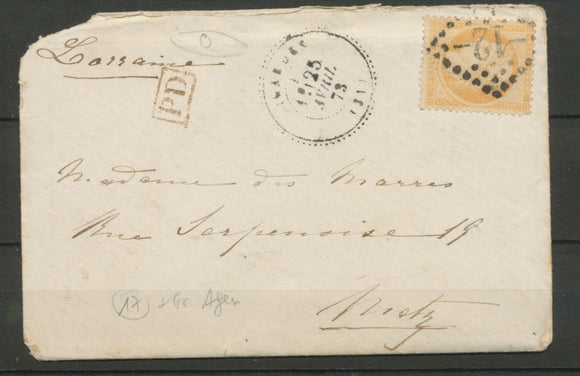 Lorraine
PD
25
AVRIL
73
(31)
42
Madame des Marres
Rue Serpenoise 19
Metz
17 Agen